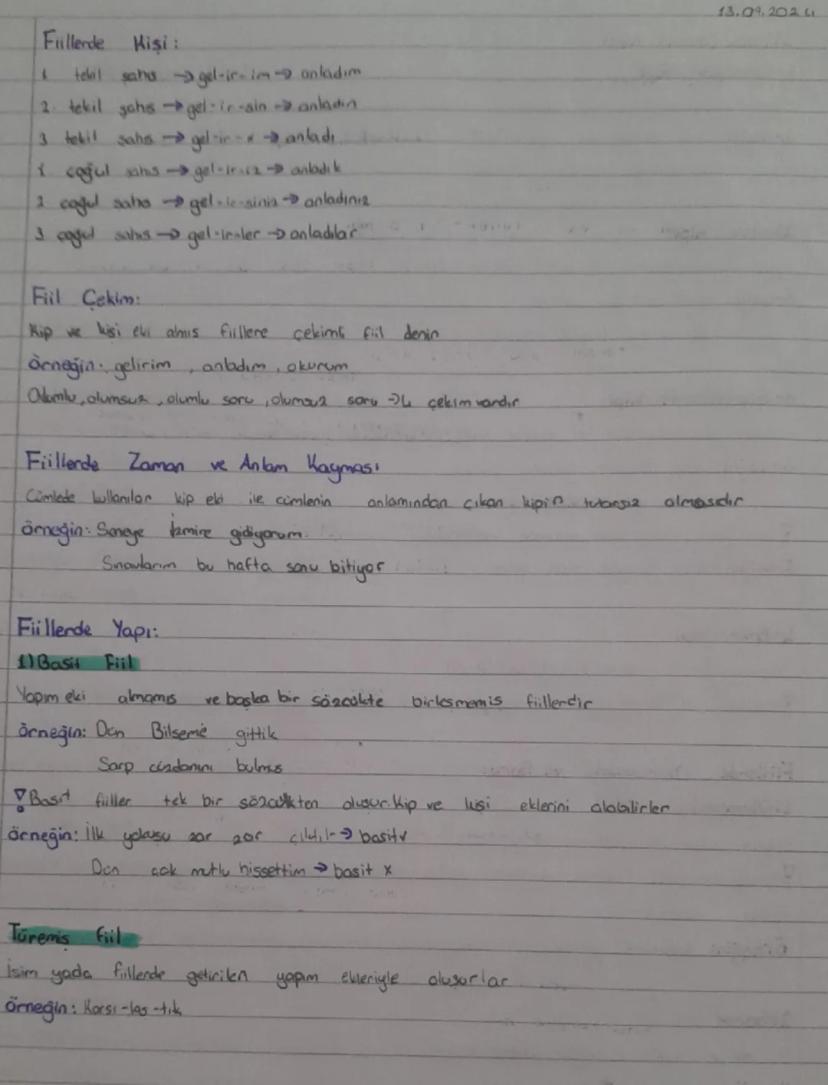 13.09.2024
Fiillerde Kişi:
1 tekil şahıs → gel-ir-im → anladım
2. tekil şahıs → gel-ir-sin → anladın
3 tekil şahıs → gel-ir-x → anladı
1 çoğul şahıs → gel-ir-iz → anladık
2 çoğul şahıs → gel-ir-siniz → anladınız
3 çoğul şahıs → gel-ir-ler → anladılar
Fiil Çekim:
Kip ve kişi eki almış fiillere çekimli fiil denir
Örneğin: gelirim, anladım, okurum
Olumlu, olumsuz, olumlu soru, olumsuz soru → 4 çekim vardır
Fiillerde Zaman ve Anlam Kayması
Cümlede kullanılan kip eki ile cümlenin anlamından çıkan kipin tutarsız olmasıdır
örneğin: Seneye İzmire gidiyorum.
Sınavlarım bu hafta sonu bitiyor
Fiillerde Yapı:
1) Basit Fiil
Yapım eki almamış ve başka bir sözcükte birleşmemiş fiillerdir
örneğin: Dün Bilseme gittik
Sarp cüzdanını bulmuş
! Basit fiiller tek bir sözcükten oluşur. Kip ve kişi eklerini alabilirler
örneğin: İlk yokuşu zor zor çıktık → basit ✓
Dün çok mutlu hissettim → basit x
Türemiş fiil
İsim yada fiillerde getirilen yapım ekleriyle oluşurlar
örneğin: Karşı-laş-tık